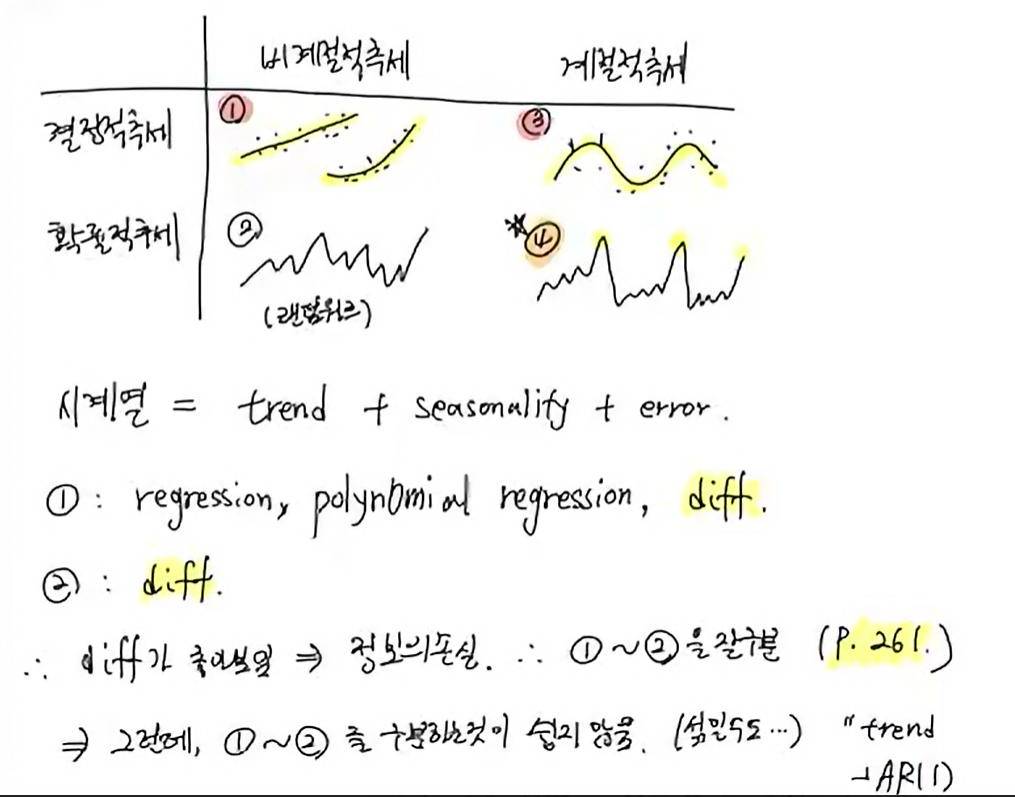 비계절적추세 계절적추세
결정적추세 ① ③
확률적추세 ② *④
(랜덤워크)
시계열 = trend + seasonality + error.
①: regression, polynomial regression, diff.
②: diff.
∴ diff가 좋아보임 ⇒ 정보의손실. ∴ ①~②을 잘구분 (P. 261.)
⇒ 그런데, ①~②를 구분하는것이 쉽지 않음. (섞일수도…) "trend
→AR(1)